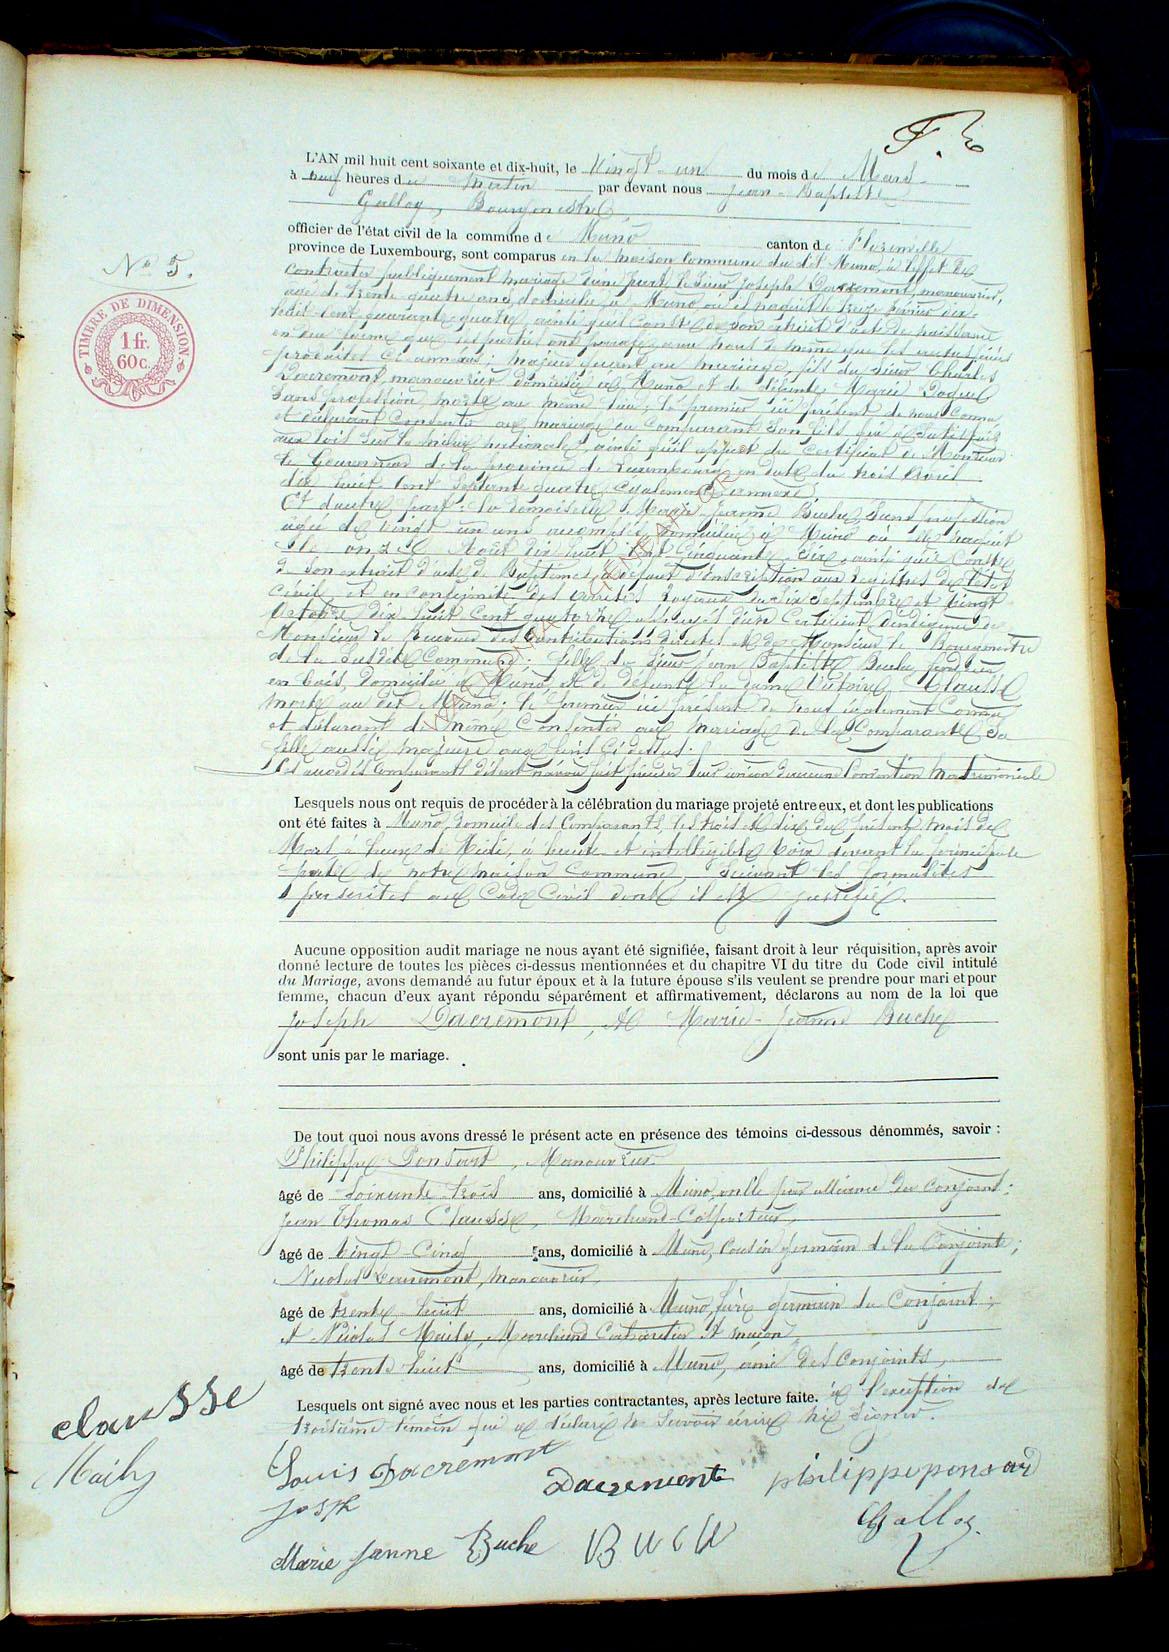 F. 3
L'AN mil huit cent soixante et dix-huit, le Vingt-un du mois de Mars
à neuf heures du matin par devant nous Jean-Baptiste
Galloy, Bourgmestre
officier de l'état civil de la commune de Muno canton de Florenville
province de Luxembourg, sont comparus en la maison Commune du dit Muno, à l'effet de
Contracter publiquement mariage d'une part le Sieur Joseph Dacremont, manouvrier,
âgé de trente quatre ans, domicilié à Muno où il naquit le treize février dix-
huit-cent quarante-quatre ainsi qu'il Conste de son extrait d'acte de naissance
No 5.
TIMBRE DE DIMENSION
1 fr.
60 c.
produites ci-annexés; majeur quant au mariage, fils du Sieur Charles
Dacremont, manouvrier domicilié à Muno et de défunte Marie
Sans profession morte au même lieu; le premier ici présent de nous Connu
et déclarant Consentir au mariage du Comparant Son fils qui a Satisfait
aux lois sur la milice nationale, ainsi qu'il appert du certificat de Monsieur
le Gouverneur de la province de Luxembourg en date du trois Avril
dix huit Cent Septante quatre également annexé.
Et d'autre part: la demoiselle Marie-Jeanne Buche, Sans profession
âgée de vingt un ans accomplis, domiciliée à Muno où elle naquit
le onze Août dix huit Cent Cinquante Six, ainsi qu'il Conste
de son extrait d'acte de Baptême, à défaut d'inscription aux registres de l'état
Civil, et en conformité des arrêtés royaux du dix Septembre et vingt
Octobre dix huit Cent quatorze, d'un Certificat d'indigence de
Monsieur le Receveur des Contributions directes et de Monsieur le Bourgmestre
de la Susdite Commune: fille du Sieur Jean Baptiste Buche,
en bois, domicilié à Muno et de défunte la dame Victoire Clausse
morte au dit Muno: le premier ici présent de nous également Connu
et déclarant de même Consentir au mariage de la Comparante Sa
fille aussi majeure aux fins Ci dessus.
Les Comparants disent n'avoir fait précéder leur union d'aucune Convention Matrimoniale
Lesquels nous ont requis de procéder à la célébration du mariage projeté entre eux, et dont les publications
ont été faites à Muno, domicile des Comparants, les trois et dix du présent mois de
Mars à heure de Midi, à haute et intelligible Voix devant la principale
porte de notre maison Commune, Suivant les formalités
prescrites au Code Civil dont il est justifié.
Aucune opposition audit mariage ne nous ayant été signifiée, faisant droit à leur réquisition, après avoir
donné lecture de toutes les pièces ci-dessus mentionnées et du chapitre VI du titre du Code civil intitulé
du Mariage, avons demandé au futur époux et à la future épouse s'ils veulent se prendre pour mari et pour
femme, chacun d'eux ayant répondu séparément et affirmativement, déclarons au nom de la loi que
Joseph Dacremont, et Marie-Jeanne Buche
sont unis par le mariage.
De tout quoi nous avons dressé le présent acte en présence des témoins ci-dessous dénommés, savoir :
Philippe Ponsart, Manouvrier
âgé de Soixante-trois ans, domicilié à Muno, oncle par alliance du Conjoint;
Jean Thomas Clausse, Marchand-Colporteur,
âgé de Vingt-Cinq ans, domicilié à Muno, Cousin germain de la Conjointe;
Nicolas Dacremont, manouvrier,
âgé de trente-huit ans, domicilié à Muno, frère germain du Conjoint;
et Nicolas Maily, Marchand Cabaretier et maçon
âgé de trente huit ans, domicilié à Muno, ami des Conjoints,
Lesquels ont signé avec nous et les parties contractantes, après lecture faite. à l'exception du
troisième témoin qui a déclaré ne Savoir écrire ni Signer.
clausse
Maily
Louis Dacremont
Joseph
Dacremont
philippe ponsard
Galloy
Marie Janne Buche
BUCH